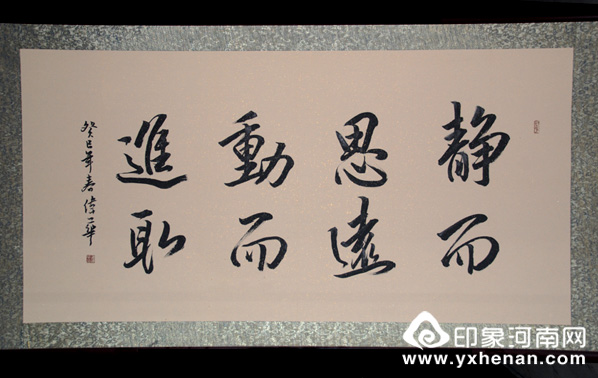 静而
思遠
動而
進取
癸巳年春偉華
印象河南网
www.yxhenan.com